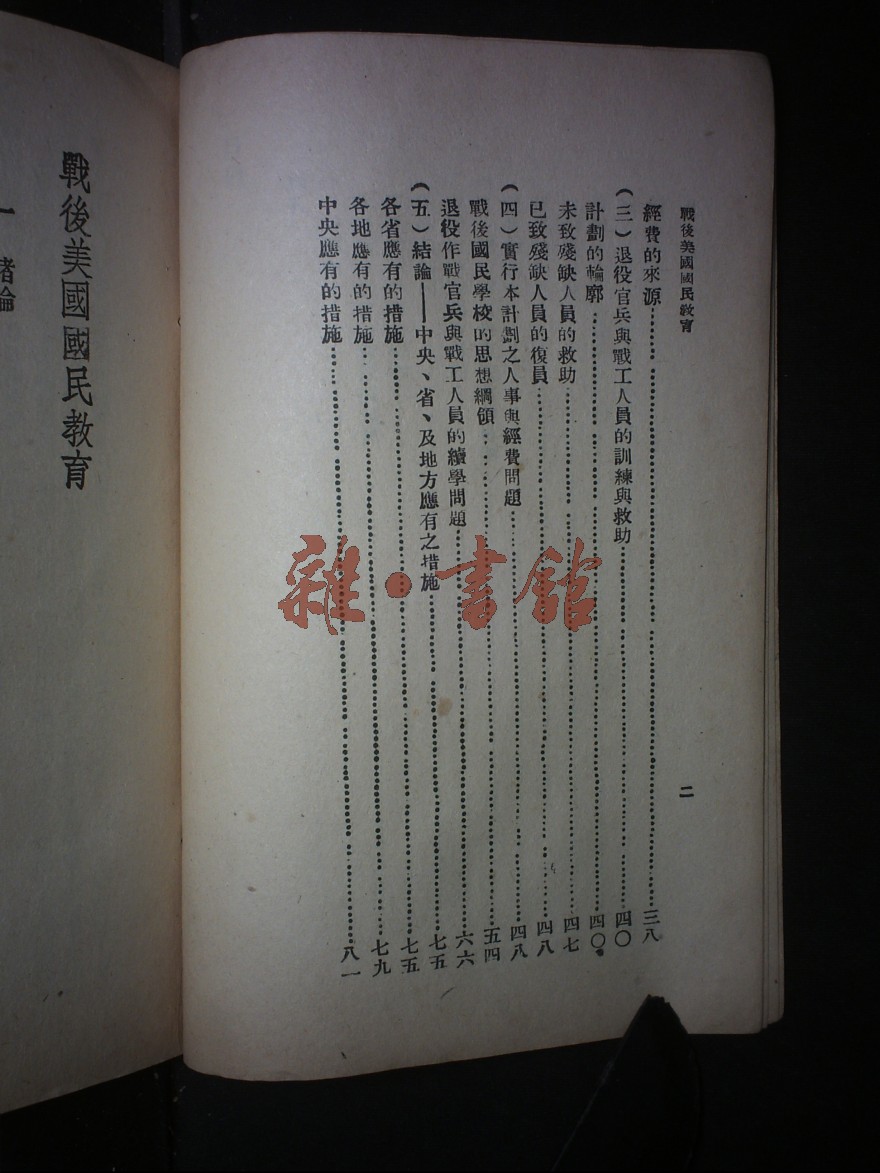 戰後美國國民教育
經費的來源……三八
(三)退役官兵與戰工人員的訓練與救助……四〇
計劃的輪廓……四〇
未致殘缺人員的救助……四七
已致殘缺人員的復員……四八
(四)實行本計劃之人事與經費問題……四八
戰後國民學校的思想綱領……五四
退役作戰官兵與戰工人員的續學問題……六六
(五)結論——中央、省、及地方應有之措施……七五
各省應有的措施……七五
各地應有的措施……七九
中央應有的措施……八一
二
戰後美國國民教育
一 緒論
雜·書館